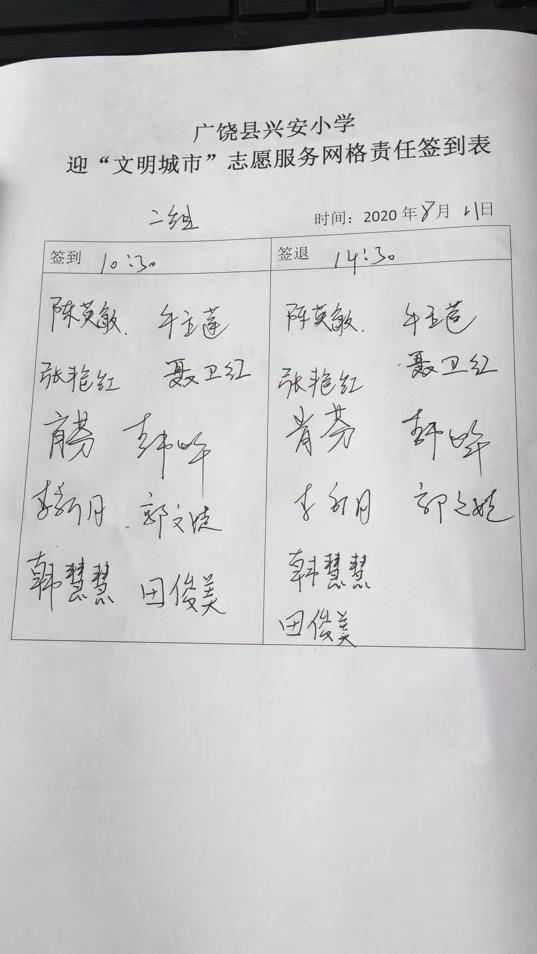 广饶县兴安小学
迎“文明城市”志愿服务网格责任签到表
二组 时间：2020年8月21日
签到 10:30 签退 14:30
陈英敏. 牛玉莲 陈英敏. 牛玉莲
张艳红 聂卫红 张艳红 聂卫红
肖芬 韩吟 肖芬 韩吟
李新月 郭文婕 李新月 郭文婕
韩慧慧 田俊美 韩慧慧
田俊美